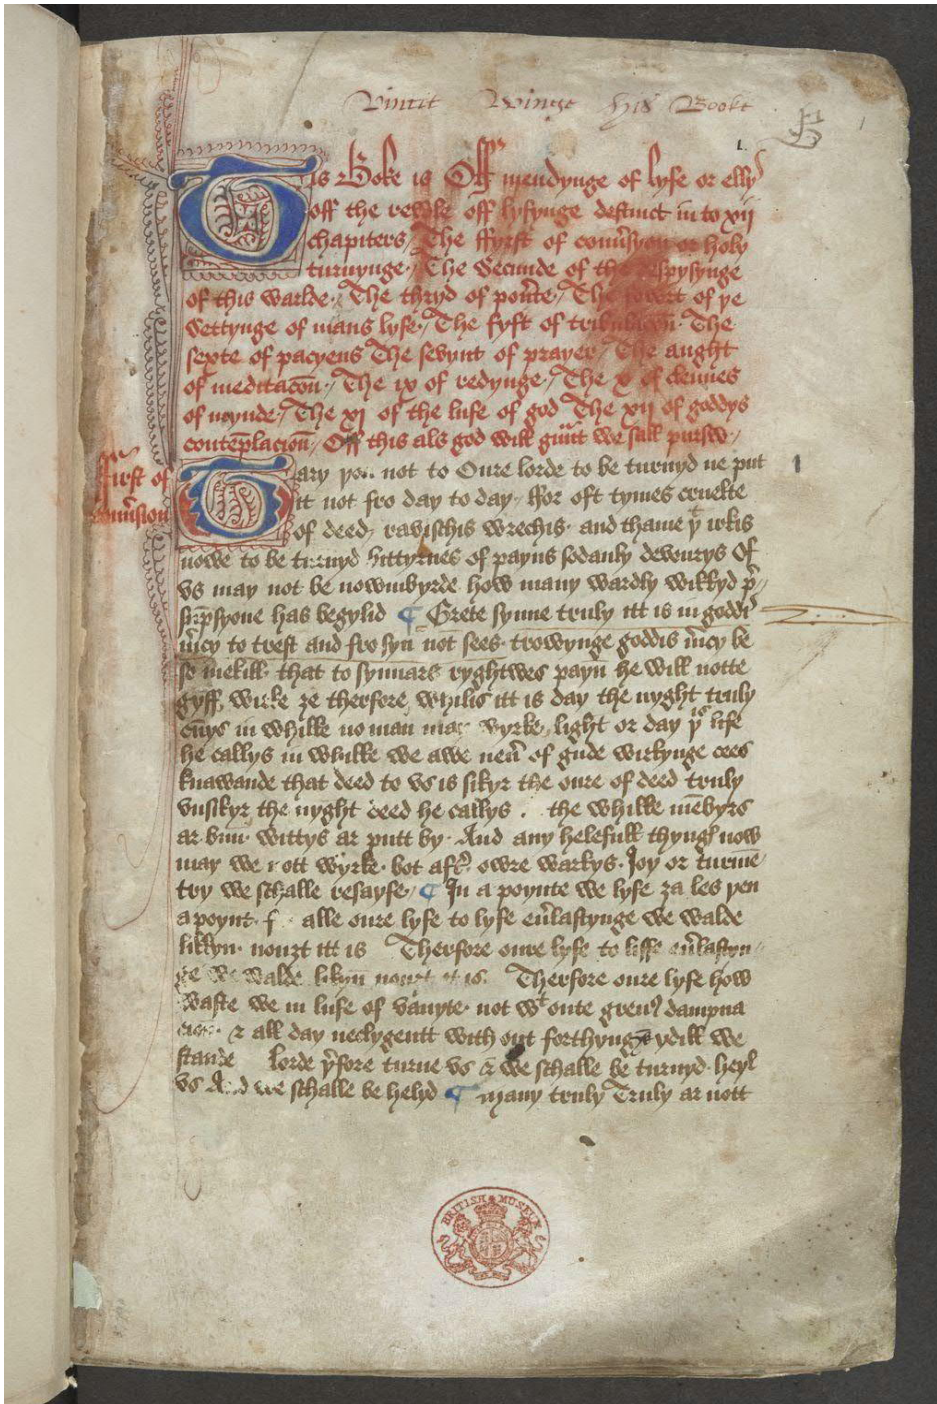 Vincit Winge His Booke
B 1
1.
Tis Boke is Off mendynge of lyfe or ellys
off the rewle off lyfynge destinct in to xij
chapiters / The ffyrst of conũsyon or holy
turnynge / The Secunde of the despysynge
of this warlde / The thryd of pouͤte / The fowrt of ye
Settynge of mans lyfe / The fyft of tribulacōn · The
sexte of pacyens The sevynt of prayer / The aught
of meditacōn / The ix of redynge / The x of clennes
of mynde / The xj of the lufe of god The xij of goddys
contēplacion̄ / Off this als god will gum̃t we sall pursw /
ffirst of
conũsion
Tary you not to Oure lorde to be turnyd ne put
itt not fro day to day / ffor oft tymes cruelte
of deed / ravischis wrechis · and thame yͭ irkis
nowe to be turnyd bittyrnes of payns sodanly devourys Of
vs may not be nowmbyrde how many wardly wikkyd p̃
sūpsyone has begylid ¶ Grete synne truly itt is in goddis
m̃cy to trest and fro syn not sees · trowynge goddis m̃cy be
so mekill · that to synnars ryghtwes payn he will notte
gyff / wirke ze therfore / whilis itt is day the nyght truly
cũys in whilke no man may wyrke / light or day yis life
he callys in whilke we awe neũ of gude wirkynge cees
knawande that deed to vs is sikyr the oure of deed truly
vnsikyr the nyght deed he callys . the whilke mēbyrs
ar bun · wittys ar putt by · And any helefull thyngꝭ now
may we nott wyrke · bot aft̃ owre warkys · Joy or turmē
try we schalle resayfe / ¶ In a poynte we lyfe za les yen
a poynt · f alle oure lyfe to lyfe eũlastynge we walde
likkyn · nouzt itt is Therfore oure lyfe to liffe eũlastyn
ge we walde likyn nouzt it is Therfore oure lyfe how
waste we in lufe of vanyte · not wͭ oute greuꝰ dampna
cion · & all day neclygentt with out forthyngꝭ ydill we
stande lorde ỹfore turne vs & we schalle be turnyd · heyl
vs And we schalle be helyd ¶ many truly Truly ar nott
BRITISH MUSEUM